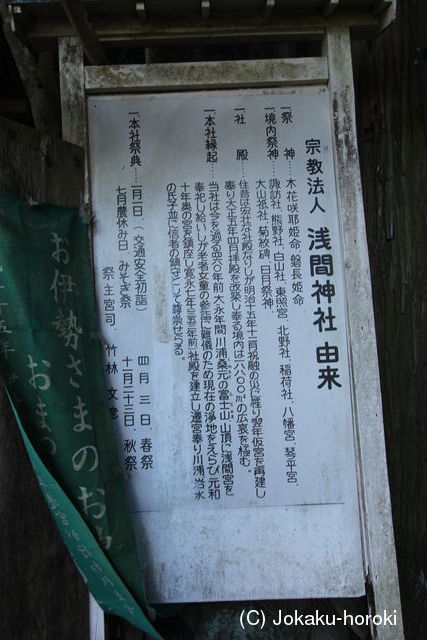 宗教法人 浅間神社 由来
一祭 神…木花咲耶姫命、磐長姫命
一境内祭神…諏訪社、熊野社、白山社、東照宮、北野社、稲荷社、八幡宮、琴平宮、
大山祇社、菊紋碑、日月祭神、
一社 殿…往昔は宏壮な社殿なりしが明治十五年十二月祝融の災に罹り翌年仮宮を再建し
奉り大正五年四月拝殿を改築し奉る境内は六八〇〇㎡の広衰を極む。
一本社縁起…当社は今を過る四六〇年前大永年間川浦桑元の富士山々頂に浅間宮を
奉祀し給いしが老者女童の参詣に難儀のため現在の浄地をえらび元和
十年奥の宮を鎮座し寛永七年三五三年前社殿を建立し遷宮奉り川浦、
の氏子並に信者の鎮守として尊崇せらる。
一本社祭典…一月一日、(交通安全初詣) 四月三日、春祭
七月農休み日、みそぎ祭 十一月二十三日、秋祭
祭主宮司、竹林
お伊勢さまのお
おまつ
(C) Jokaku-horoki